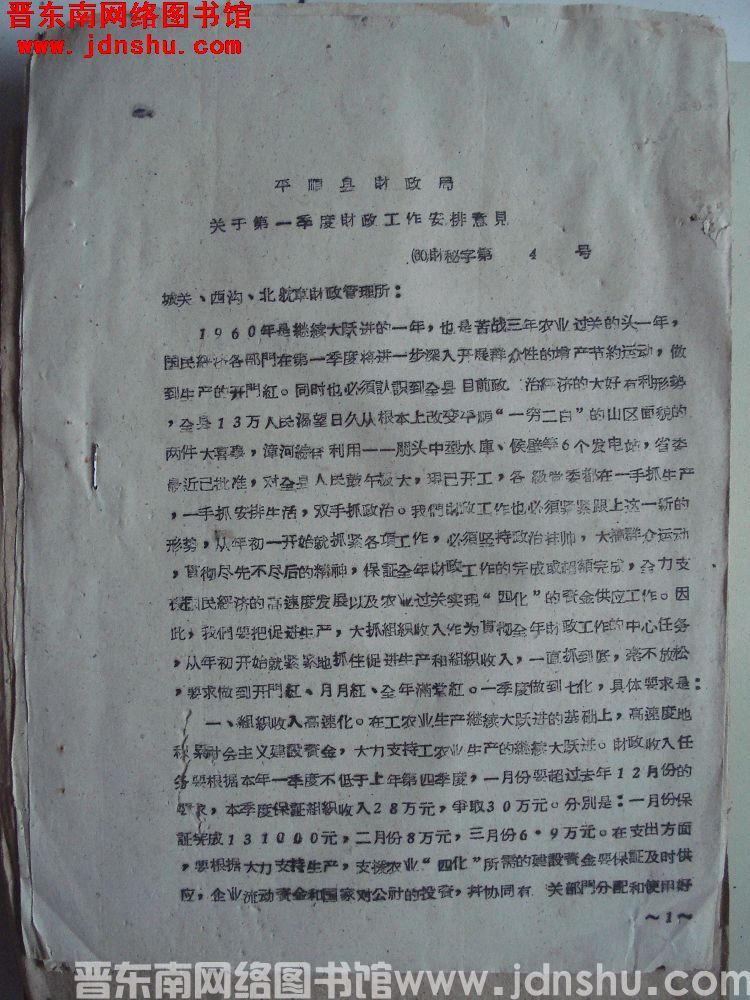 晋东南网络图书馆
www.jdnshu.com
平顺县財政局
关于第一季度財政工作安排意見
(60)財秘字第 4 号
城关、西沟、北耽車財政管理所：
1960年是继續大跃进的一年，也是苦战三年农业过关的头一年，
国民經济各部門在第一季度将进一步深入开展群众性的增产节約运动，做
到生产的开門紅。同时也必須认識到全县目前政 治經济的大好有利形勢
，全县13万人民渴望日久从根本上改变平順“一穷二白”的山区面貌的
两件大喜事，漳河綜合利用——朋头中型水庫、候壁等6个发电站，省委
最近已批准，对全县人民鼓午极大，现已开工，各級党委都在一手抓生产
，一手抓安排生活，双手抓政治。我們財政工作也必須紧紧跟上这一新的
形势，从年初一开始就抓紧各項工作，必須坚持政治挂帅，大搞群众运动
，貫彻尽先不尽后的精神，保証全年財政工作的完成或超額完成，全力支
援国民經济的高速度发展以及农业过关实現“四化”的資金供应工作。因
此，我們要把促进生产，大抓組织收入作为貫彻全年財政工作的中心任务
，从年初开始就紧紧地抓住促进生产和組织收入，一直抓到底，毫不放松
，要求做到开門紅、月月紅、全年满堂紅。一季度做到七化，具体要求是：
一、組织收入高速化。在工农业生产继續大跃进的基础上，高速度地
积累社会主义建設資金，大力支持工农业生产的继續大跃进。財政收入任
务要根据本年一季度不低于上年第四季度，一月份要超过去年12月份的
要求，本季度保証組织收入28万元，爭取30万元。分別是：一月份保
証完成131000元，二月份8万元，三月份6·9万元。在支出方面
，要根据大力支持生产，支援农业“四化”所需的建設資金要保証及时供
应，企业流动資金和国家对公社的投資，并协同有 关部門分配和使用好
～1～
晋东南网络图书馆www.jdnshu.com